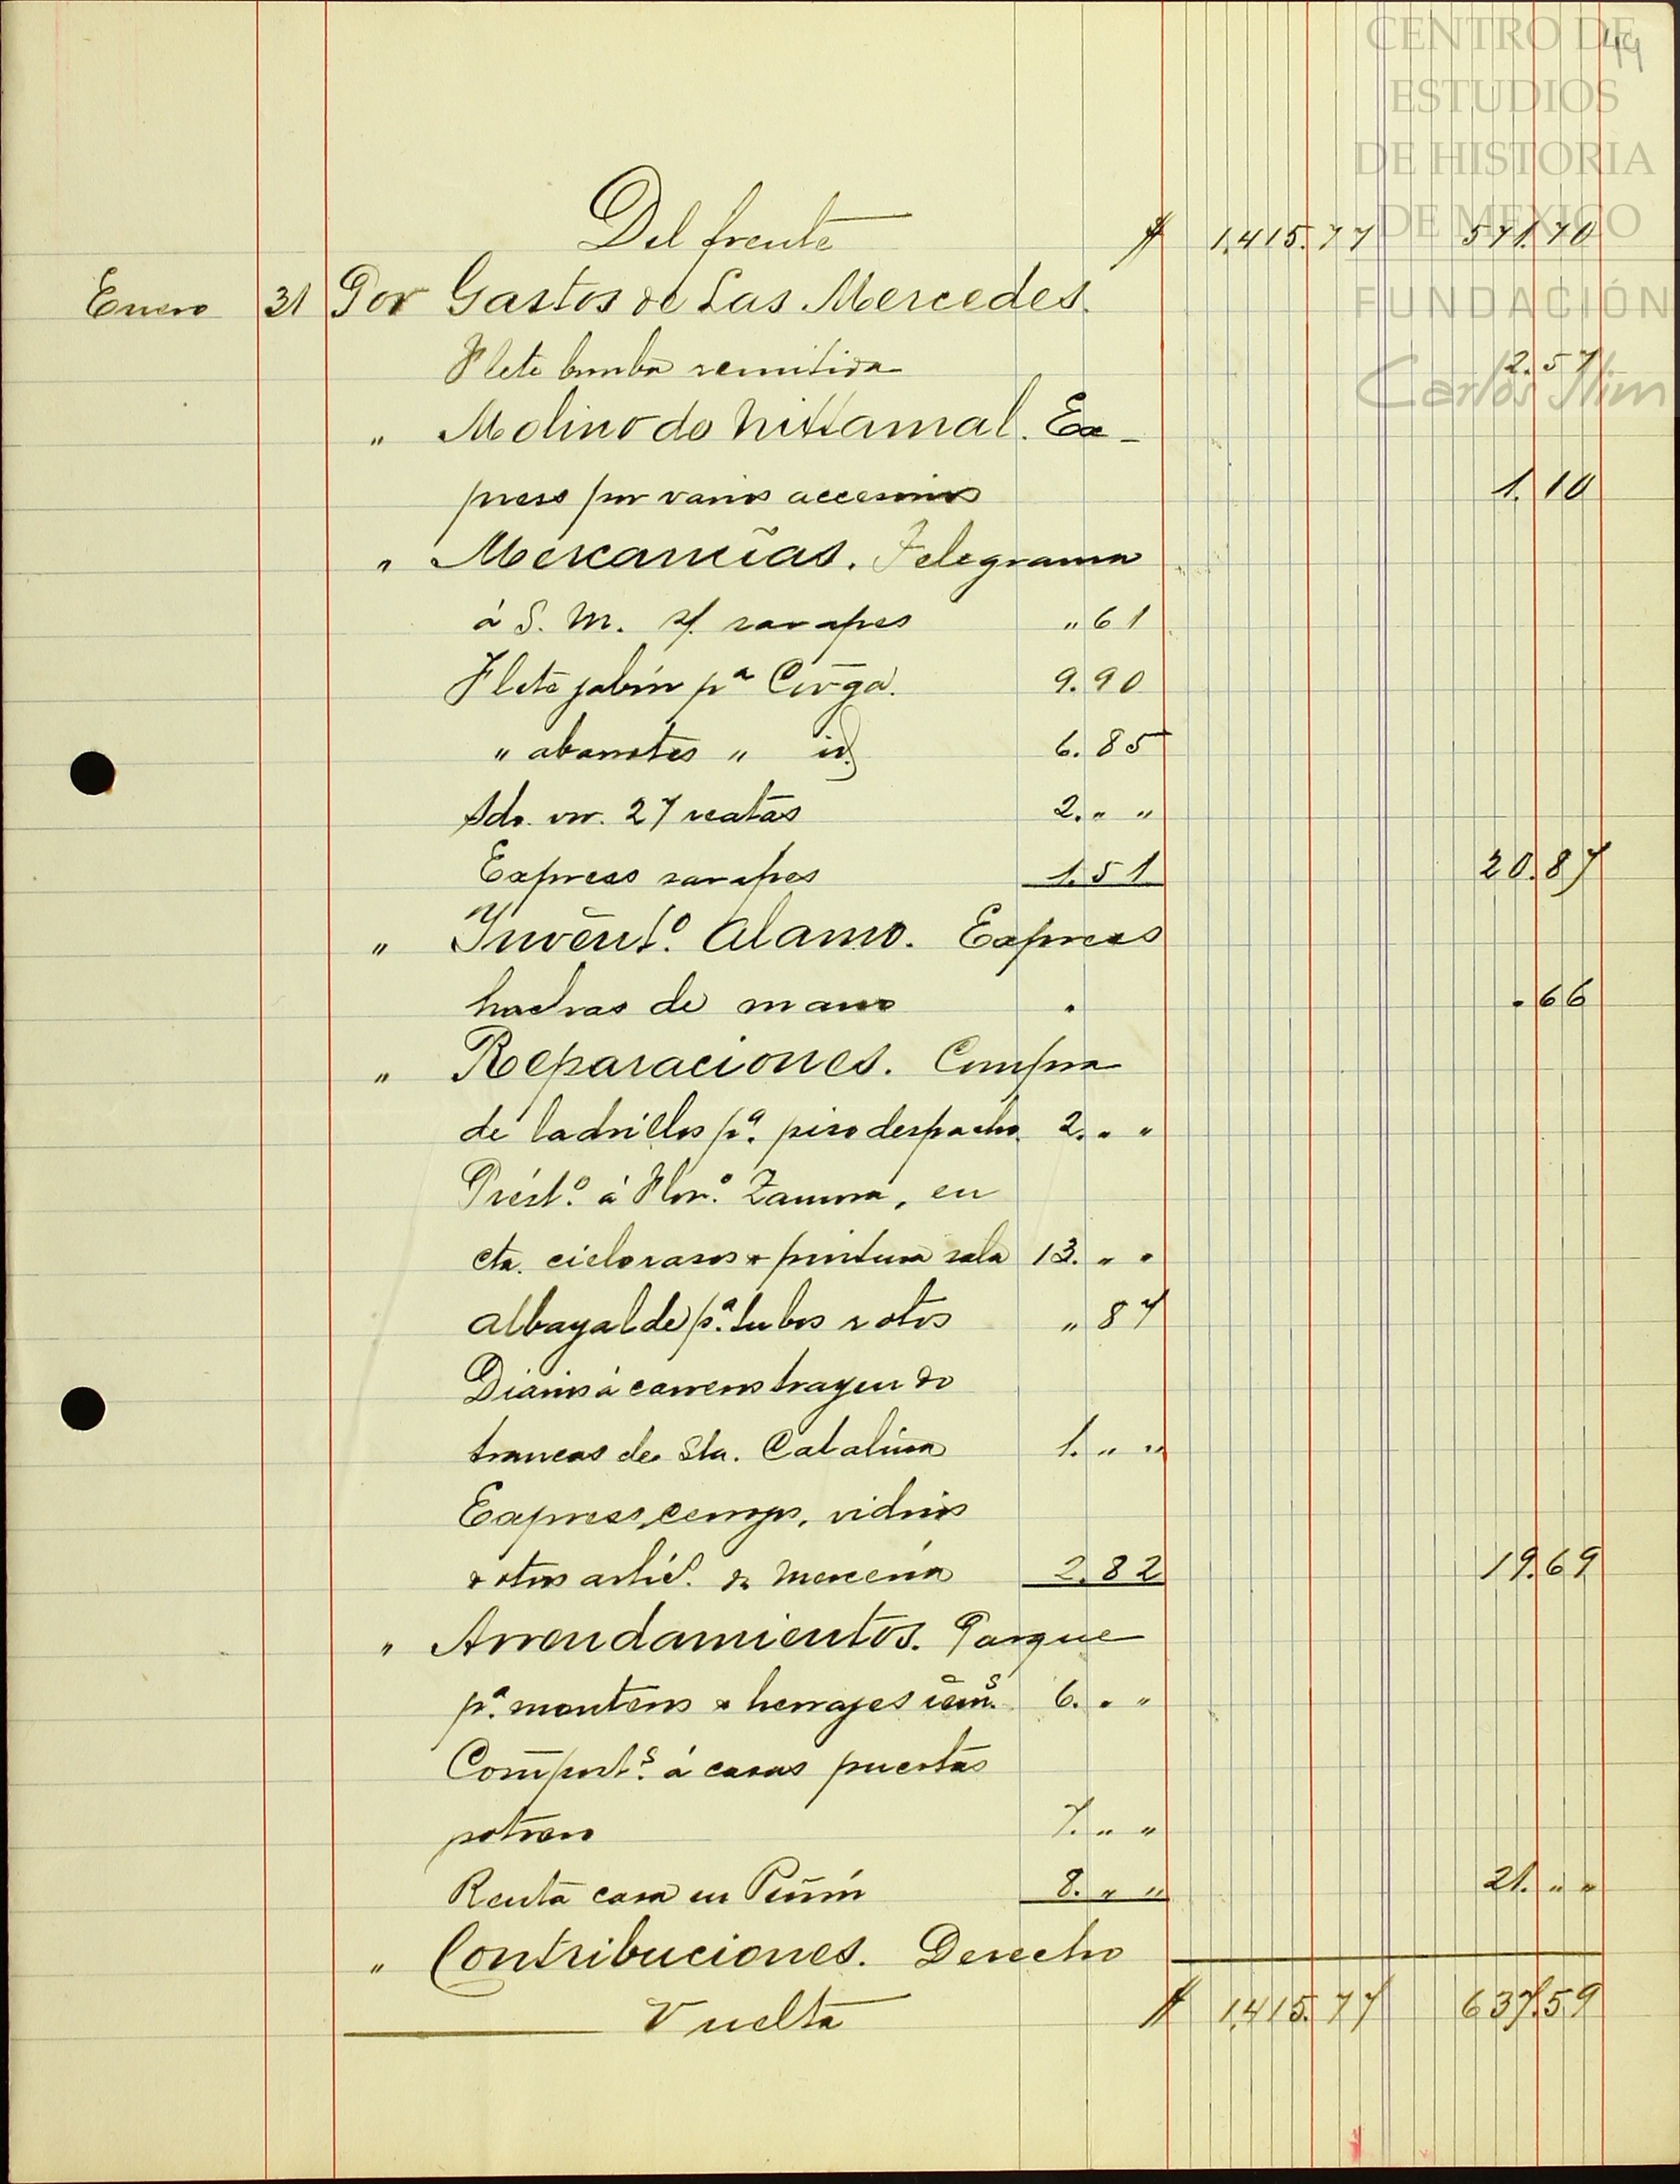 CENTRO DE
ESTUDIOS
DE HISTORIA
DE MEXICO
FUNDACIÓN
Carlos Slim
Del frente $ 1,415.77 571.70
Enero 31 Por Gastos de Las Mercedes.
Flete bomba remitida 2.57
" Molino de Nixtamal. Ex-
press por varios accesorios 1.10
" Mercancías. Telegrama
á S. M. s/. sarapes " 61
Flete jabón pª Ciérga. 9.90
" abarrotes " id. 6.85
Sdo. vr. 27 reatas 2. " "
Express sarapes 1.51 20.87
" Invent.º Alamo. Express
hachas de mano . .66
" Reparaciones. Compra
de ladrillos pª. piso despacho 2. " "
Prést.º á Flor.º Zamora, en
cta. cielorasos & pintura sala 13. " "
Albayalde pª. tubos rotos " 87
Diarios á carreros trayendo
trancas de Sta. Catalina 1. " "
Express, vidrios
& otros artíc. de mercería 2.82 19.69
" Arrendamientos. Parque
pª. monteros & herrajes 6. " "
á casas puertas
potrero 7. " "
Renta casa en Peñón 8. " " 21. " "
" Contribuciones. Derecho
Vuelta $ 1,415.77 637.59